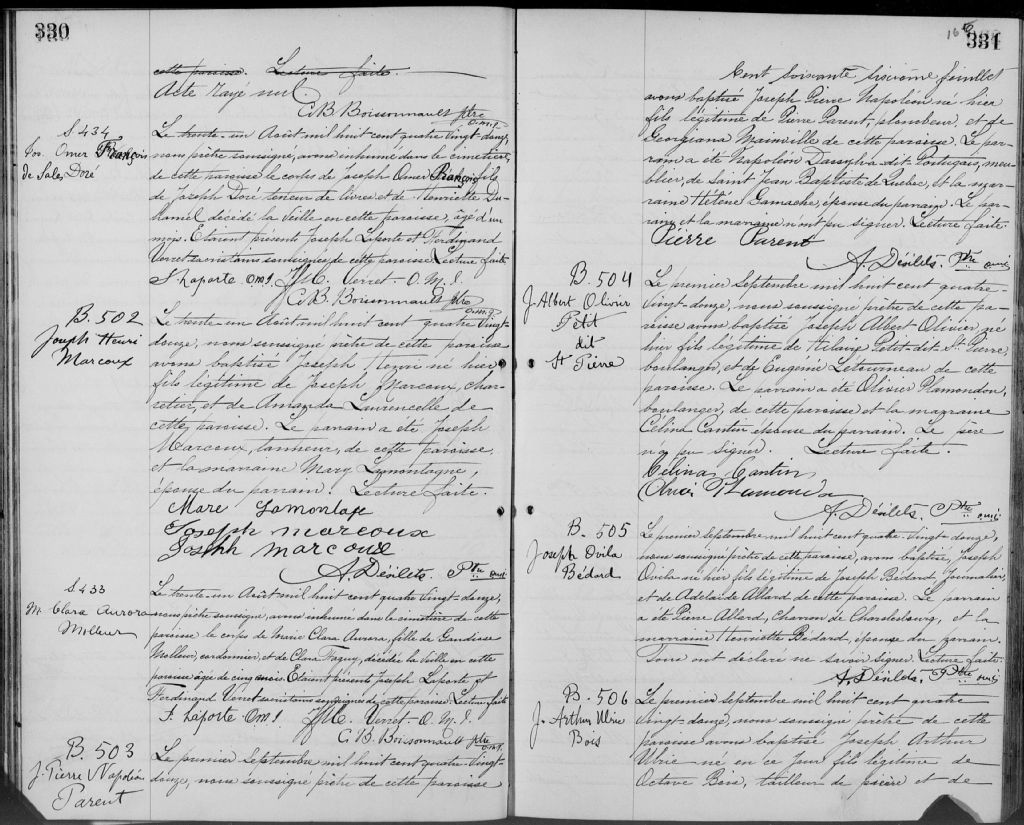 330
cette paroisse. Lecture faite.
Acte rayé nul
C. B. Boissonnault ptre
o.m.j.
S 434
Jos. Omer François
de Sales Doré
Le trente-un Août mil huit cent quatre vingt-douze,
nous prêtre soussigné, avons inhumé dans le cimetière
de cette paroisse le corps de Joseph Omer François fils
de Joseph Doré teneur de livres et de Henriette Du-
hamel décédé la veille en cette paroisse, âgé d'un
mois. Etaient présents Joseph Laporte et Ferdinand
Verret sacristains soussignés de cette paroisse. Lecture faite
J. Laporte O.M.I. F. M. Verret - O. M. I.
C. B. Boissonnault ptre
o.m.j.
B. 502
Joseph Henri
Marcoux
Le trente-un Août mil huit cent quatre vingt-
douze, nous soussigné prêtre de cette paroisse
avons baptisé Joseph Henri né hier
fils légitime de Joseph Marcoux, char-
retier, et de Amanda Laurencelle de
cette paroisse. Le parrain a été Joseph
Marcoux, tanneur, de cette paroisse
et la marraine Mary Lamontagne,
épouse du parrain. Lecture faite.
Mare Lamontag
Joseph Marcoux
Joseph Marcoux
A. Désilets. Ptre omi
S 433
M. Clara Aurora
Molleur
Le trente-un Août mil huit cent quatre vingt-douze,
nous prêtre soussigné, avons inhumé dans le cimetière de cette
paroisse le corps de Marie Clara Aurora, fille de Gaudiose
Molleur, cordonnier, et de Clara Paquy, décédée la veille en cette
paroisse âgée de cinq mois. Etaient présents Joseph Laporte et
Ferdinand Verret sacristains soussignés de cette paroisse. Lecture faite
J. Laporte O.M.I. F. M. Verret - O. M. I.
C. B. Boissonnault ptre
o.m.j.
B. 503
J. Pierre Napoléon
Parent
Le premier Septembre mil huit cent quatre-vingt-
douze, nous soussigné prêtre de cette paroisse
166
331
Cent soixante sixième feuillet
avons baptisé Joseph Pierre Napoléon né hier
fils légitime de Pierre Parent, plombeur, et de
Georgiana Mainville de cette paroisse. Le par-
rain a été Napoléon Dassylva dit Portugais, meu-
blier, de Saint Jean Baptiste de Québec, et la mar-
raine Hélène Gamache, épouse du parrain. Le par-
rain et la marraine n'ont pu signer. Lecture faite.
Pierre Parent
A. Désilets. Ptre omi
B. 504
J. Albert Olivier
Petit
dit
St Pierre
Le premier Septembre mil huit cent quatre-
vingt-douze, nous soussigné prêtre de cette pa-
roisse avons baptisé Joseph Albert-Olivier, né
hier fils légitime de Hilaire Petit-dit-St Pierre,
boulanger, et de Eugénie Létourneau de cette
paroisse. Le parrain a été Olivier Plamondon,
boulanger, de cette paroisse et la marraine
Célina Cantin épouse du parrain. Le père
n'a pu signer. Lecture faite.
Célina Cantin
Olivier Plamondon
A. Désilets. Ptre omi
B. 505
Joseph Ovila
Bédard
Le premier septembre mil huit cent quatre-vingt-douze,
nous soussigné prêtre de cette paroisse, avons baptisé, Joseph
Ovila né hier fils légitime de Joseph Bédard, Journalier,
et de Adelaide Allard de cette paroisse. Le parrain
a été Pierre Allard, Charron de Charlesbourg, et la
marraine Henriette Bédard, épouse du parrain.
Tous ont déclaré ne savoir signer. Lecture faite.
A. Désilets, Ptre omi
B. 506
J. Arthur Ulric
Bois
Le premier septembre mil huit cent quatre
vingt-douze, nous soussigné prêtre de cette
paroisse avons baptisé Joseph Arthur
Ulric né en ce jour fils légitime de
Octave Bois, tailleur de pierre et de